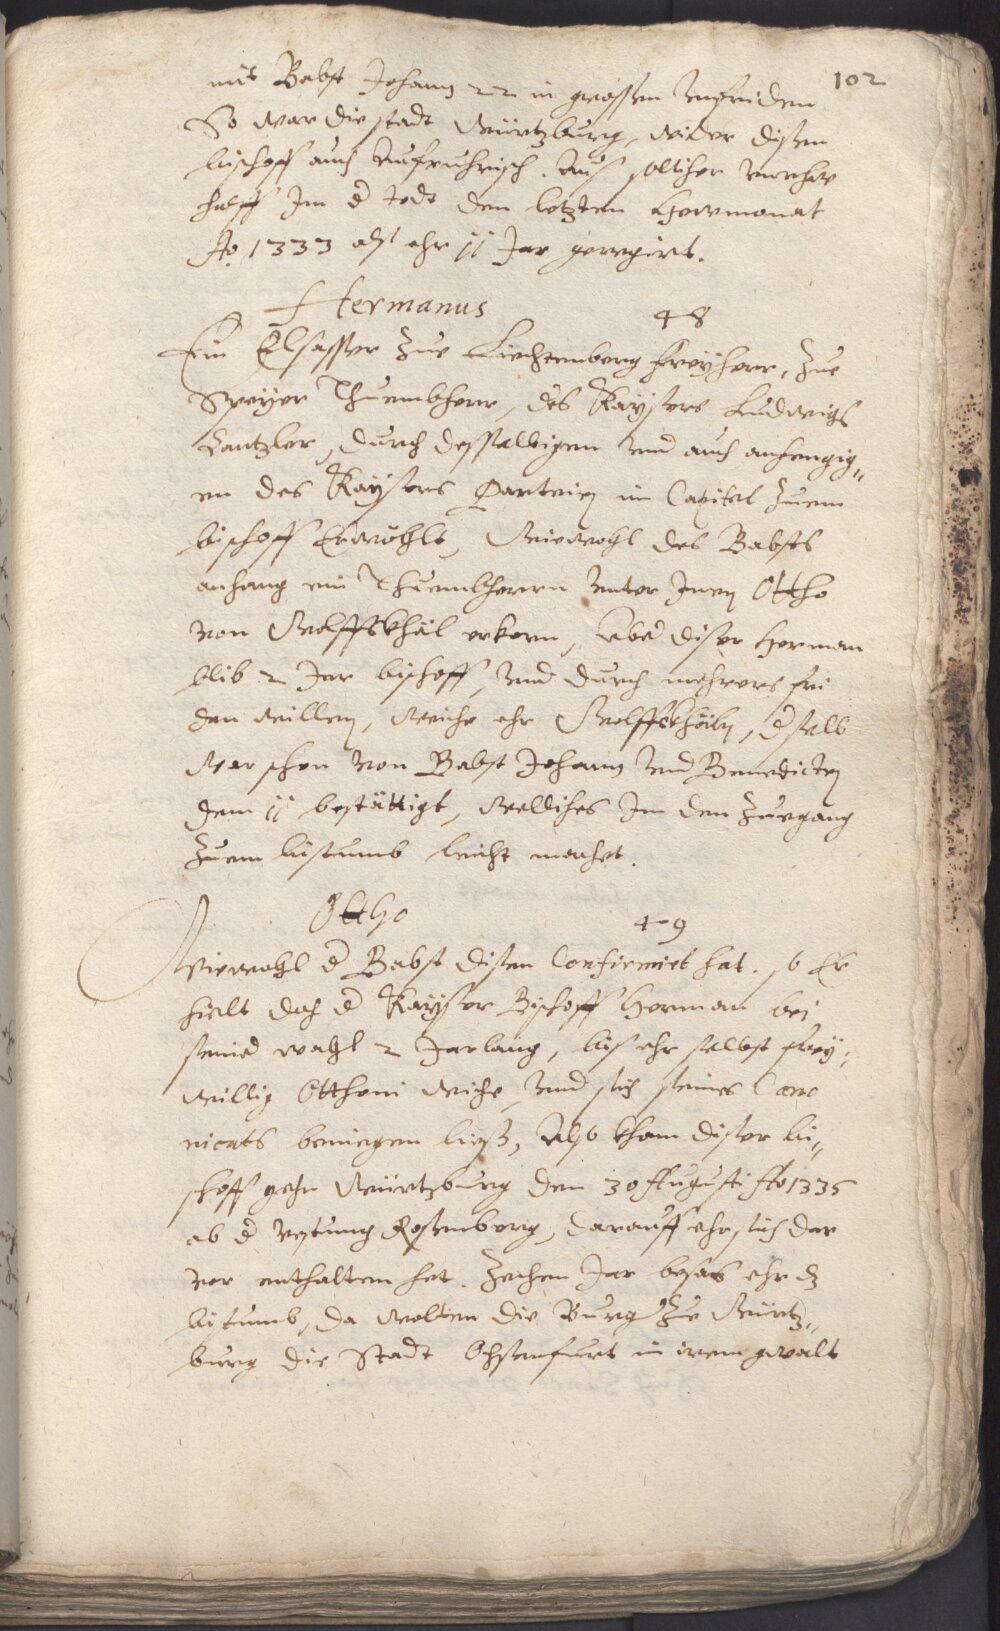 102
mit Babst Johann 22 in grossen unfriden
So war die stadt Würtzburg, wider disen
bischoff auch Aufruhrisch. Aus sollicher
halff Im d todt den letzten Hewmonat
Ao 1333 alß ehr 11 Jar geregirt.
Hermanus 48
Ein Elsasser zue Liechtenberg freyherr, Zue
Speyer Thuembherr, des Kaysers Ludwigs
Cantzler, durch desselbigen und auch anhengig„
en des Kaysers Parteien im Capitel zuem
bischoff Erwöhlt, Wiewohl des Babsts
anhang ein Thuembherrn unter Inen Ottho
von Wolffskhäl erkorn, Aber diser Herman
blib 2 Jar bischoff, und durch mehrers fri
den willen, Weiche ehr Wolffskhäln, dselb
War schon von Babst Johann und Benedicten
dem 11 bestättigt, Welliches Im den Zuegang
Zuem bistumb leicht machet.
Ottho 49
Wiewohl d Babst disen Confirmirt hat. so Er
hielt doch d Kayser Bischoff Herman bei
seiner wahl 2 Jarlang, bis ehr selbst frey„
willig Otthoni Weiche, und sich seines Cano
nicats beniegen liesz, Also kham diser bi„
schoff gehn Würtzburg den 30 Augusti Ao 1335
ab d vestung Rosenberg, darauff ehr sich dar
vor enthalten hat. Zechen Jar besas ehr dz
bistumb, da wolten die Burg Zue Würtz„
burg die Stadt Ochsenfurt in irem gwalt